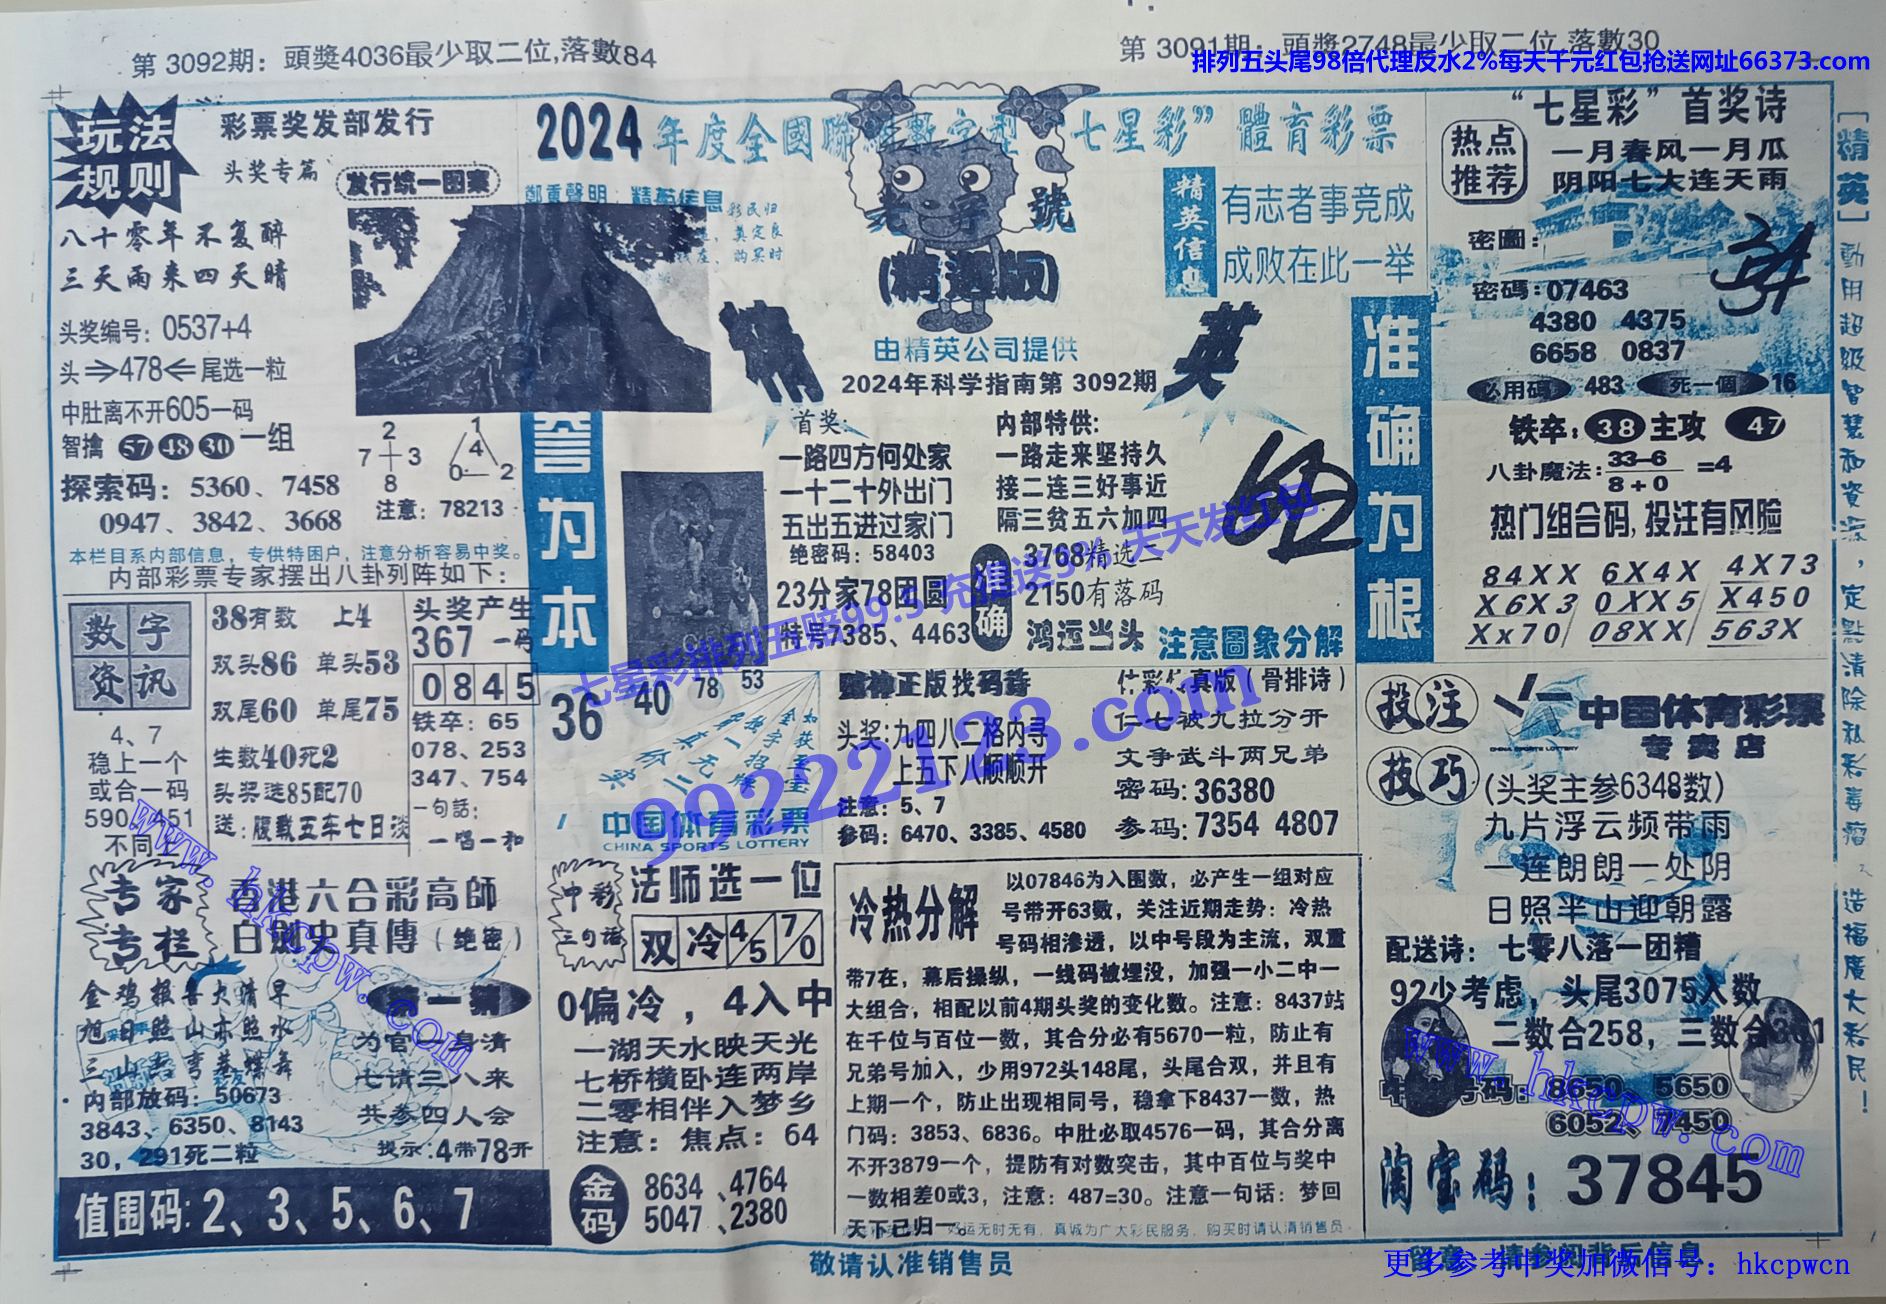 第 3092期：頭獎4036最少取二位,落數84
第 3091期：頭獎2748最少取二位,落數30
排列五头尾98倍代理反水2%每天千元红包抢送网址66373.com
玩法
规则
彩票奖发部发行
头奖专篇
发行统一图案
八十零年不复醉
三天雨来四天晴
头奖编号：0537+4
头⇒478⇐尾选一粒
中肚离不开605一码
智擒 57 48 30 一组
探索码：5360、7458
0947、3842、3668
2
7 3
8
1
4
0 2
注意：78213
本栏目系内部信息，专供特困户，注意分析容易中奖。
内部彩票专家摆出八卦列阵如下：
2024
七星彩” 體育彩票
鄭重聲明：精英信息
老字號
(精選版)
精英信息
有志者事竞成
成败在此一举
精 英
由精英公司提供
2024年科学指南第 3092期
誉为本
首奖：
一路四方何处家
一十二十外出门
五出五进过家门
绝密码：58403
23分家78团圆
特号7385、4463
内部特供：
一路走来坚持久
接二连三好事近
隔三贫五六加四
准确
3768精选二
2150有落码
鸿运当头
注意圖象分解
准确为根
“七星彩”首奖诗
热点
推荐
一月春风一月瓜
阴阳七大连天雨
密圖：
密碼：07463
4380 4375
6658 0837
必用碼 483 死一個 16
铁卒：38 主攻 47
八卦魔法：33–6
8+0
=4
热门组合码,投注有风险
84XX 6X4X 4X73
X6X3 0XX5 X450
Xx70 08XX 563X
[精英]動用超级智慧和資源，定點清除私彩毒瘤、造福廣大彩民！
数字
资讯
4、7
稳上一个
或合一码
38有数 上4
双头86 单头53
双尾60 单尾75
生数40死2
头奖选85配70
送：腹载五车七日淡
头奖产生
367 一码
0845
铁卒：65
078、253
347、754
一句話：
一唱一和
36
40
78
53
中国体育彩票
CHINA SPORTS LOTTERY
赌神正版找码诗
头奖:九四八二格内寻
上五下八顺顺开
注意：5、7
参码：6470、3385、4580
真版（骨排诗）
仁七被九拉分开
文争武斗两兄弟
密码:36380
参码:7354 4807
投注
技巧
中国体育彩票
专卖店
CHINA SPORTS LOTTERY
(头奖主参6348数)
九片浮云频带雨
一连朗朗一处阴
日照半山迎朝露
配送诗：七零八落一团糟
92少考虑，头尾3075入数
二数合258，三数合
8650、5650
6052、7450
淘宝码：37845
专家
专栏
香港六合彩高師
（绝密）
旭日照山亦照水
内部放码：50673
3843、6350、8143
30，291死二粒
为官一身清
七请三八来
共参四人会
提示:4带78开
值围码:2、3、5、6、7
中彩
三句话
法师选一位
双冷4/5 7/0
0偏冷，4入中
一湖天水映天光
七桥横卧连两岸
二零相伴入梦乡
注意：焦点：64
金码
8634、4764
5047、2380
冷热分解
以07846为入围数，必产生一组对应
号带开63数，关注近期走势：冷热
号码相渗透，以中号段为主流，双重
带7在，幕后操纵，一线码被埋没，加强一小二中一
大组合，相配以前4期头奖的变化数。注意：8437站
在千位与百位一数，其合分必有5670一粒，防止有
兄弟号加入，少用972头148尾，头尾合双，并且有
上期一个，防止出现相同号，稳拿下8437一数，热
门码：3853、6836。中肚必取4576一码，其合分离
不开3879一个，提防有对数突击，其中百位与奖中
一数相差0或3，注意：487=30。注意一句话：梦回
天下已归一。
好运无时无有，真诚为广大彩民服务，购买时请认清销售员
敬请认准销售员
留意：请参阅背后信息
七星彩排列五赔99.5 充值送9% 天天发红包
99222123.com
www.hkcpw.com
www.hkcpw.com
更多参考中奖加微信号：hkcpwcn